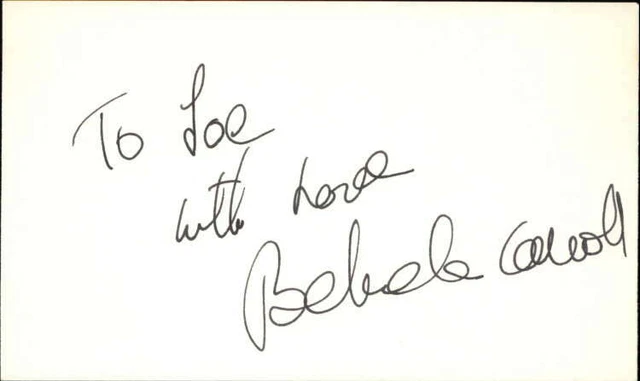 To Joe
with Love
Carroll